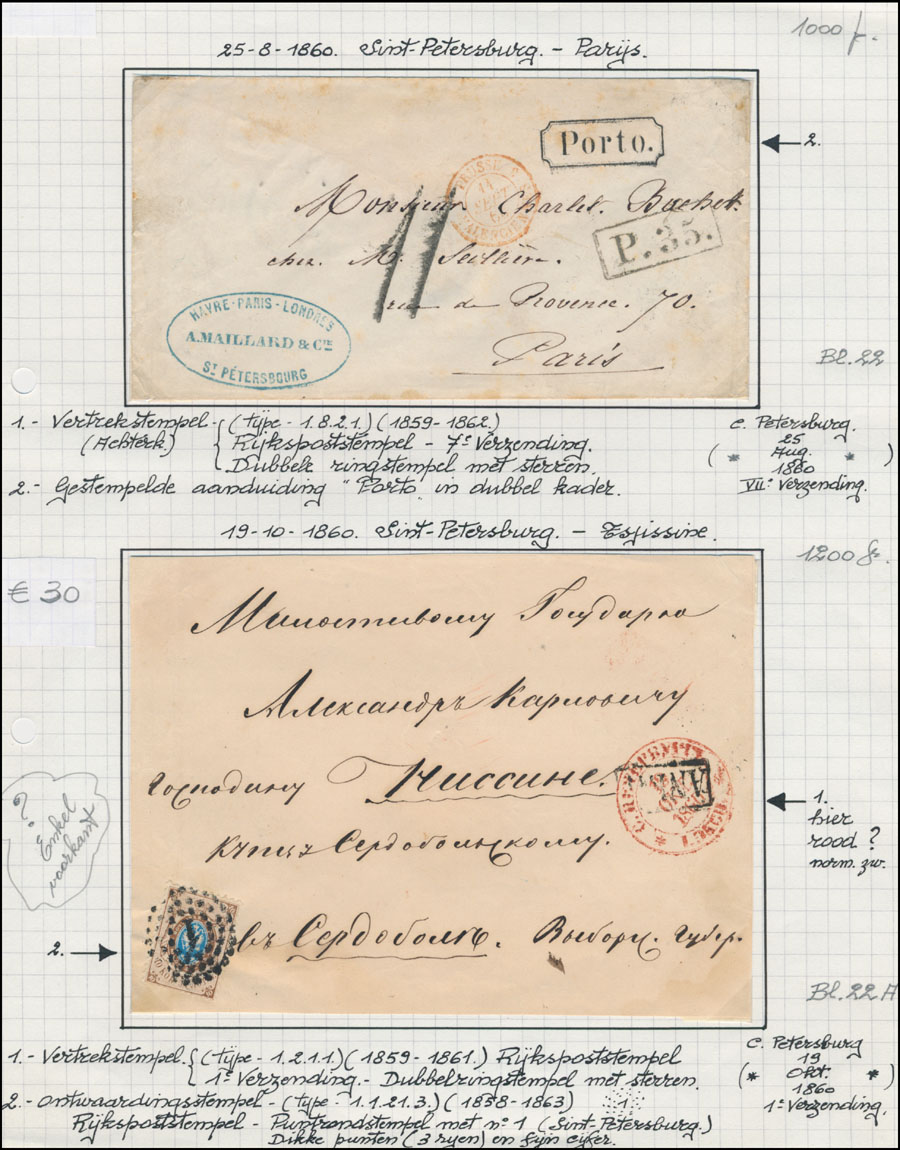 1000 f.
25-8-1860. Sint-Petersburg. - Parijs.
Porto.
2.
Monsieur Charles. Buchet.
P. 35.
chez. Mr. Seillière.
11
rue de Provence. 70.
Paris
HAVRE-PARIS-LONDRES
A. MAILLARD & Cie
St PÉTERSBOURG
Bl. 22
1.- Vertrekstempel - (type - 1.8.2.1.) (1859-1862.)
(Achterk.) Rijkspoststempel - 7e Verzending.
Dubbele ringstempel met sterren.
2.- Gestempelde aanduiding "Porto" in dubbel kader.
C. Petersburg.
25
( * Aug. * )
1860
VII: Verzending.
19-10-1860. Sint-Petersburg. - Tsjissine.
1200 f.
€ 30
Милостивому Государю
Александръ Карловичу
Господину Чиссине.
Купцу Сердобольскому.
въ Сердоболь. Выборг. Губер.
С.ПЕТЕРБУРГЪ
1.
hier
rood?
norm. zw.
?
Enkel
voorkant
2.
Bl. 22 A
1.- Vertrekstempel. (type - 1.2.1.1.) (1859-1861.) Rijkspoststempel
1e Verzending. - Dubbelringstempel met sterren.
2.- Ontwaardingsstempel - (type - 1.1.21.3.) (1858-1863) 1
Rijkspoststempel - Puntrondstempel met n° 1 (Sint-Petersburg.)
Dikke punten (3 rijen) en fijn cijfer.
C. Petersburg
19
( * Okt. * )
1860
1e Verzending.